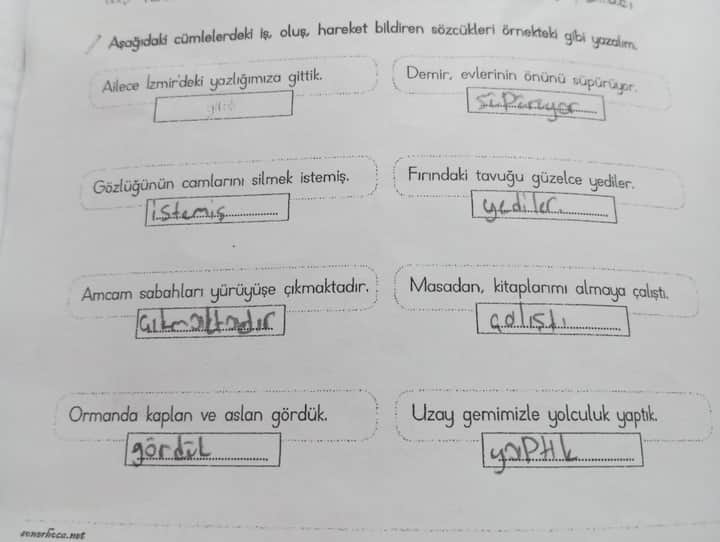 Aşağıdaki cümlelerdeki iş, oluş, hareket bildiren sözcükleri örnekteki gibi yazalım.
Ailece İzmir'deki yazlığımıza gittik.
Demir, evlerinin önünü süpürüyor.
süpürüyor
Gözlüğünün camlarını silmek istemiş.
istemiş
Fırındaki tavuğu güzelce yediler.
yediler.
Amcam sabahları yürüyüşe çıkmaktadır.
çıkmaktadır
Masadan, kitaplarımı almaya çalıştı.
çalıştı
Ormanda kaplan ve aslan gördük.
gördük
Uzay gemimizle yolculuk yaptık.
yaptık
sonerhoca.net